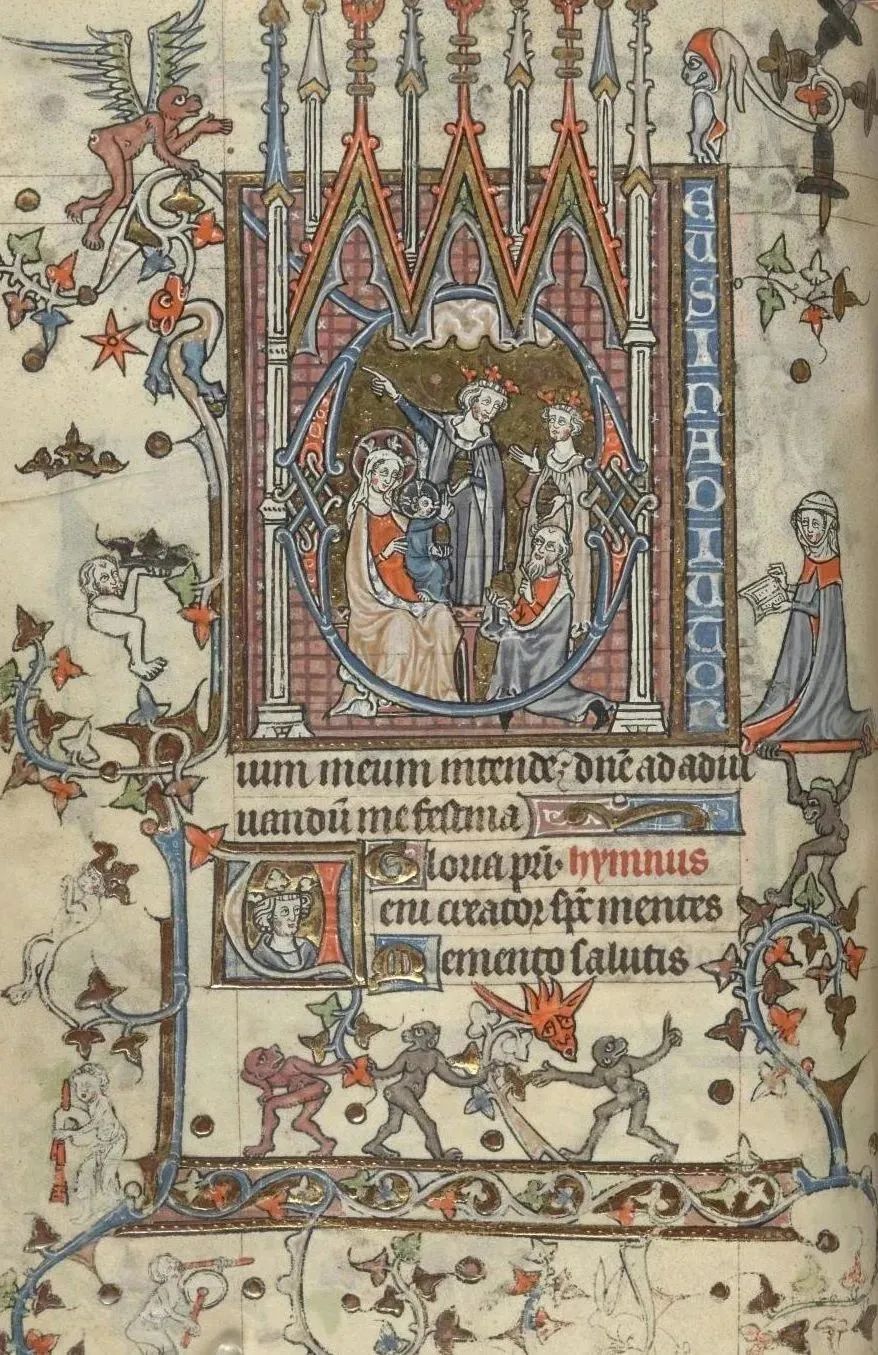 DEUSINADIUTOR
ium meum intende; dnē ad adiu
uandū me festina
Gloria pr̄i. hymnus
Veni creator sp̄c mentes
Memento salutis